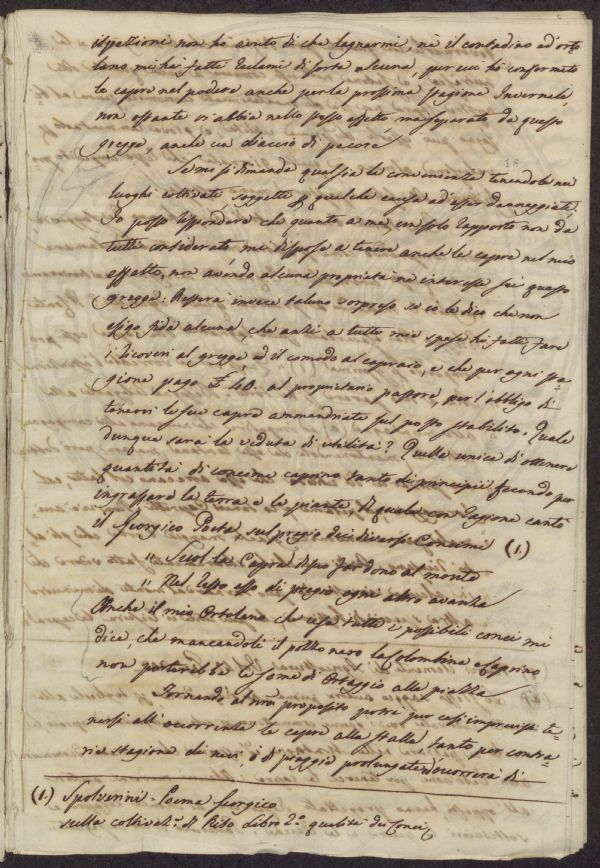 ispezioni non ho avuto di che lagnarmi, nè il contadino ad orto
lano mi ha fatto reclami di sorta alcuna, per cui ho confermato
le capre nel podere anche per la prossima stagione Invernale,
non ostante vi abbia nello stesso effetto ma separato da questo
gregge, anche un diaccio di pecore.
18
Se mi si dimanda qual sia la convenienza tenendole nei
luoghi coltivati soggette p. qualche causa ad esser danneggiati?
Io posso rispondere che quanto a me un solo rapporto non da
tutti considerato mi dispose a tenere anche le capre nel mio
effetto, non avendo alcuna proprietà ne interesse su questo
gregge: Resterà invece taluno sorpreso se io le dico che non
esigo fida alcuna, che anzi a tutte mie spese ho fatto fare
i ricoveri al gregge ed il comodo al capraio, e che per ogni sta=
gione pago £ 40. al proprietario pastore, per l'obbligo di
tenervi le sue capre ammandriate sul posto stabilito. Quale
dunque sarà la veduta di utilità? Quella unica di ottenere
quantità di concime caprino tanto di principii fecondo per
ingrassare la terra e le piante, Il quale con ragione cantò
il Georgico Poeta, sul pregio dei diversi Concimi (1.)
" Suol la Capra di suo far dono al monte
" Nel resto esso di pregio ogni altro avanza
Anche il mio Ortolano che usa tutti i possibili conci mi
dice, che mancandoli il pozzo nero la Colombina e Caprino
non porterebbe le some di Ortaggio alla piazza
Tornando al nro proposito potrà pur così improvvisi te=
nersi all'occorrenza le capre alla stalla, tanto per contra=
rie stagione di nevi, o di piogge prolungate, occorrerà di
(1.) Spolverini = Poema georgico
sulla coltivaz.e di Riso Libro 2.o qualità dei Conci